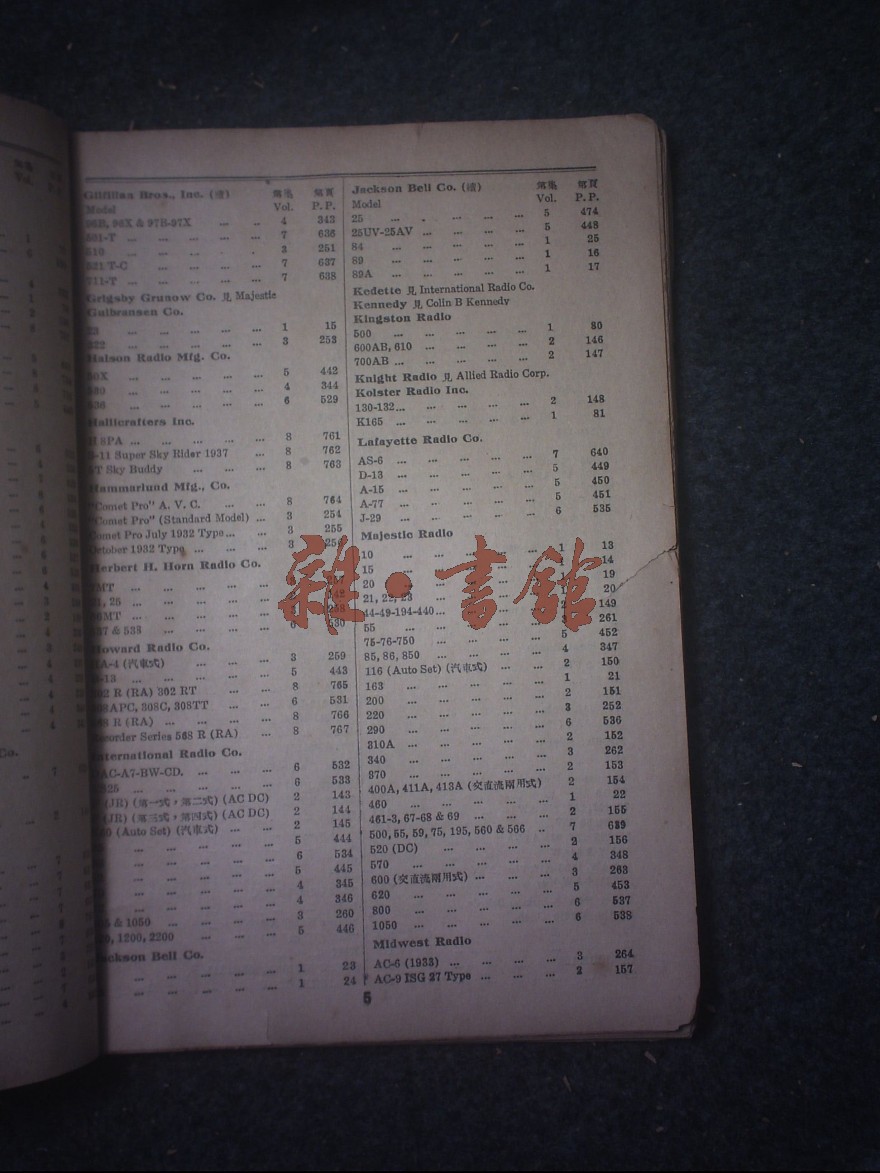 Gilfillan Bros., Inc. (續) 第集 第頁
Model Vol. P. P.
96B, 96X & 97B-97X ... .. 4 343
501-T ... ... ... ... ... 7 636
510 ... ... ... ... ... 3 251
521 T-C ... ... ... ... 7 637
711-T ... ... ... ... ... 7 638
Grigsby Grunow Co. 見 Majestic
Gulbransen Co.
23 ... ... ... ... ... 1 15
322 ... ... ... ... ... 3 253
Halson Radio Mfg. Co.
50X ... ... ... ... ... 5 442
530 ... ... ... ... ... 4 344
536 ... ... ... ... ... 6 529
Hallicrafters Inc.
... ... ... ... ... 8 761
S-11 Super Sky Rider 1937 ... 8 762
Sky Buddy ... ... 8 763
Hammarlund Mfg., Co.
"Comet Pro" A. V. C. ... ... 8 764
"Comet Pro" (Standard Model) ... 3 254
Comet Pro July 1932 Type... ... 3 255
October 1932 Type ... ... ... 3
Herbert H. Horn Radio Co.
MT ... ... ... ... ...
, 25 ... ... ... ... ...
MT ... ... ... ... ...
537 & 538 ... ... ... ... 6 530
Howard Radio Co.
A-4 (汽車式) ... ... ... 3 259
-13 ... ... ... ... ... 5 443
302 R (RA) 302 RT ... ... 8 765
308APC, 308C, 308TT ... ... 6 531
R (RA) ... ... ... ... 8 766
Recorder Series 568 R (RA) ... 8 767
International Radio Co.
AC-A7-BW-CD. ... ... ... 6 532
... ... ... ... ... 6 533
(JR) (第一式，第二式) (AC DC) 2 143
(JR) (第三式，第四式) (AC DC) 2 144
(Auto Set) (汽車式) ... ... 2 145
... ... ... ... ... 5 444
... ... ... ... ... 6 534
... ... ... ... ... 5 445
... ... ... ... ... 4 345
... ... ... ... ... 4 346
& 1050 ... ... ... ... 3 260
, 1200, 2200 ... ... ... 5 446
Jackson Bell Co.
... ... ... ... ... 1 23
... ... ... ... ... 1 24
Jackson Bell Co. (續) 第集 第頁
Model Vol. P. P.
25 ... . ... ... ... 5 474
25UV-25AV ... ... ... ... 5 448
84 ... ... ... ... ... 1 25
89 ... ... ... ... ... 1 16
89A ... ... ... ... ... 1 17
Kedette 見 International Radio Co.
Kennedy 見 Colin B Kennedy
Kingston Radio
500 ... ... ... ... ... 1 80
600AB, 610 ... ... ... ... 2 146
700AB ... ... ... ... ... 2 147
Knight Radio 見 Allied Radio Corp.
Kolster Radio Inc.
130-132... ... ... ... ... 2 148
K165 ... ... ... ... ... 1 81
Lafayette Radio Co.
AS-6 ... ... ... ... ... 7 640
D-13 ... ... ... ... ... 5 449
A-15 ... ... ... ... ... 5 450
A-77 ... ... ... ... ... 5 451
J-29 ... ... ... ... ... 6 535
Majestic Radio
10 ... ... ... ... ... 1 13
15 ... 14
20 ... 19
21, 22, 23 ... 1 20
44-49-194-440... ... 2 149
55 ... ... ... ... ... 3 261
75-76-750 ... ... ... ... 5 452
85, 86, 850 ... ... ... ... 4 347
116 (Auto Set) (汽車式) ... ... 2 150
163 ... ... ... ... ... 1 21
200 ... ... ... ... ... 2 151
220 ... ... ... ... ... 3 252
290 ... ... ... ... ... 6 536
310A ... ... ... ... ... 2 152
340 ... ... ... ... ... 3 262
370 ... ... ... ... ... 2 153
400A, 411A, 413A (交直流兩用式) 2 154
460 ... ... ... ... ... 1 22
461-3, 67-68 & 69 ... ... ... 2 155
500, 55, 59, 75, 195, 560 & 566 .. 7 639
520 (DC) ... ... ... ... 2 156
570 ... ... ... ... ... 4 348
600 (交直流兩用式) ... ... ... 3 263
620 ... ... ... ... ... 5 453
800 ... ... ... ... ... 6 537
1050 ... ... ... ... ... 6 538
Midwest Radio
AC-6 (1933) ... ... ... ... 3 264
AC-9 ISG 27 Type ... ... ... 2 157
雜·書館
5